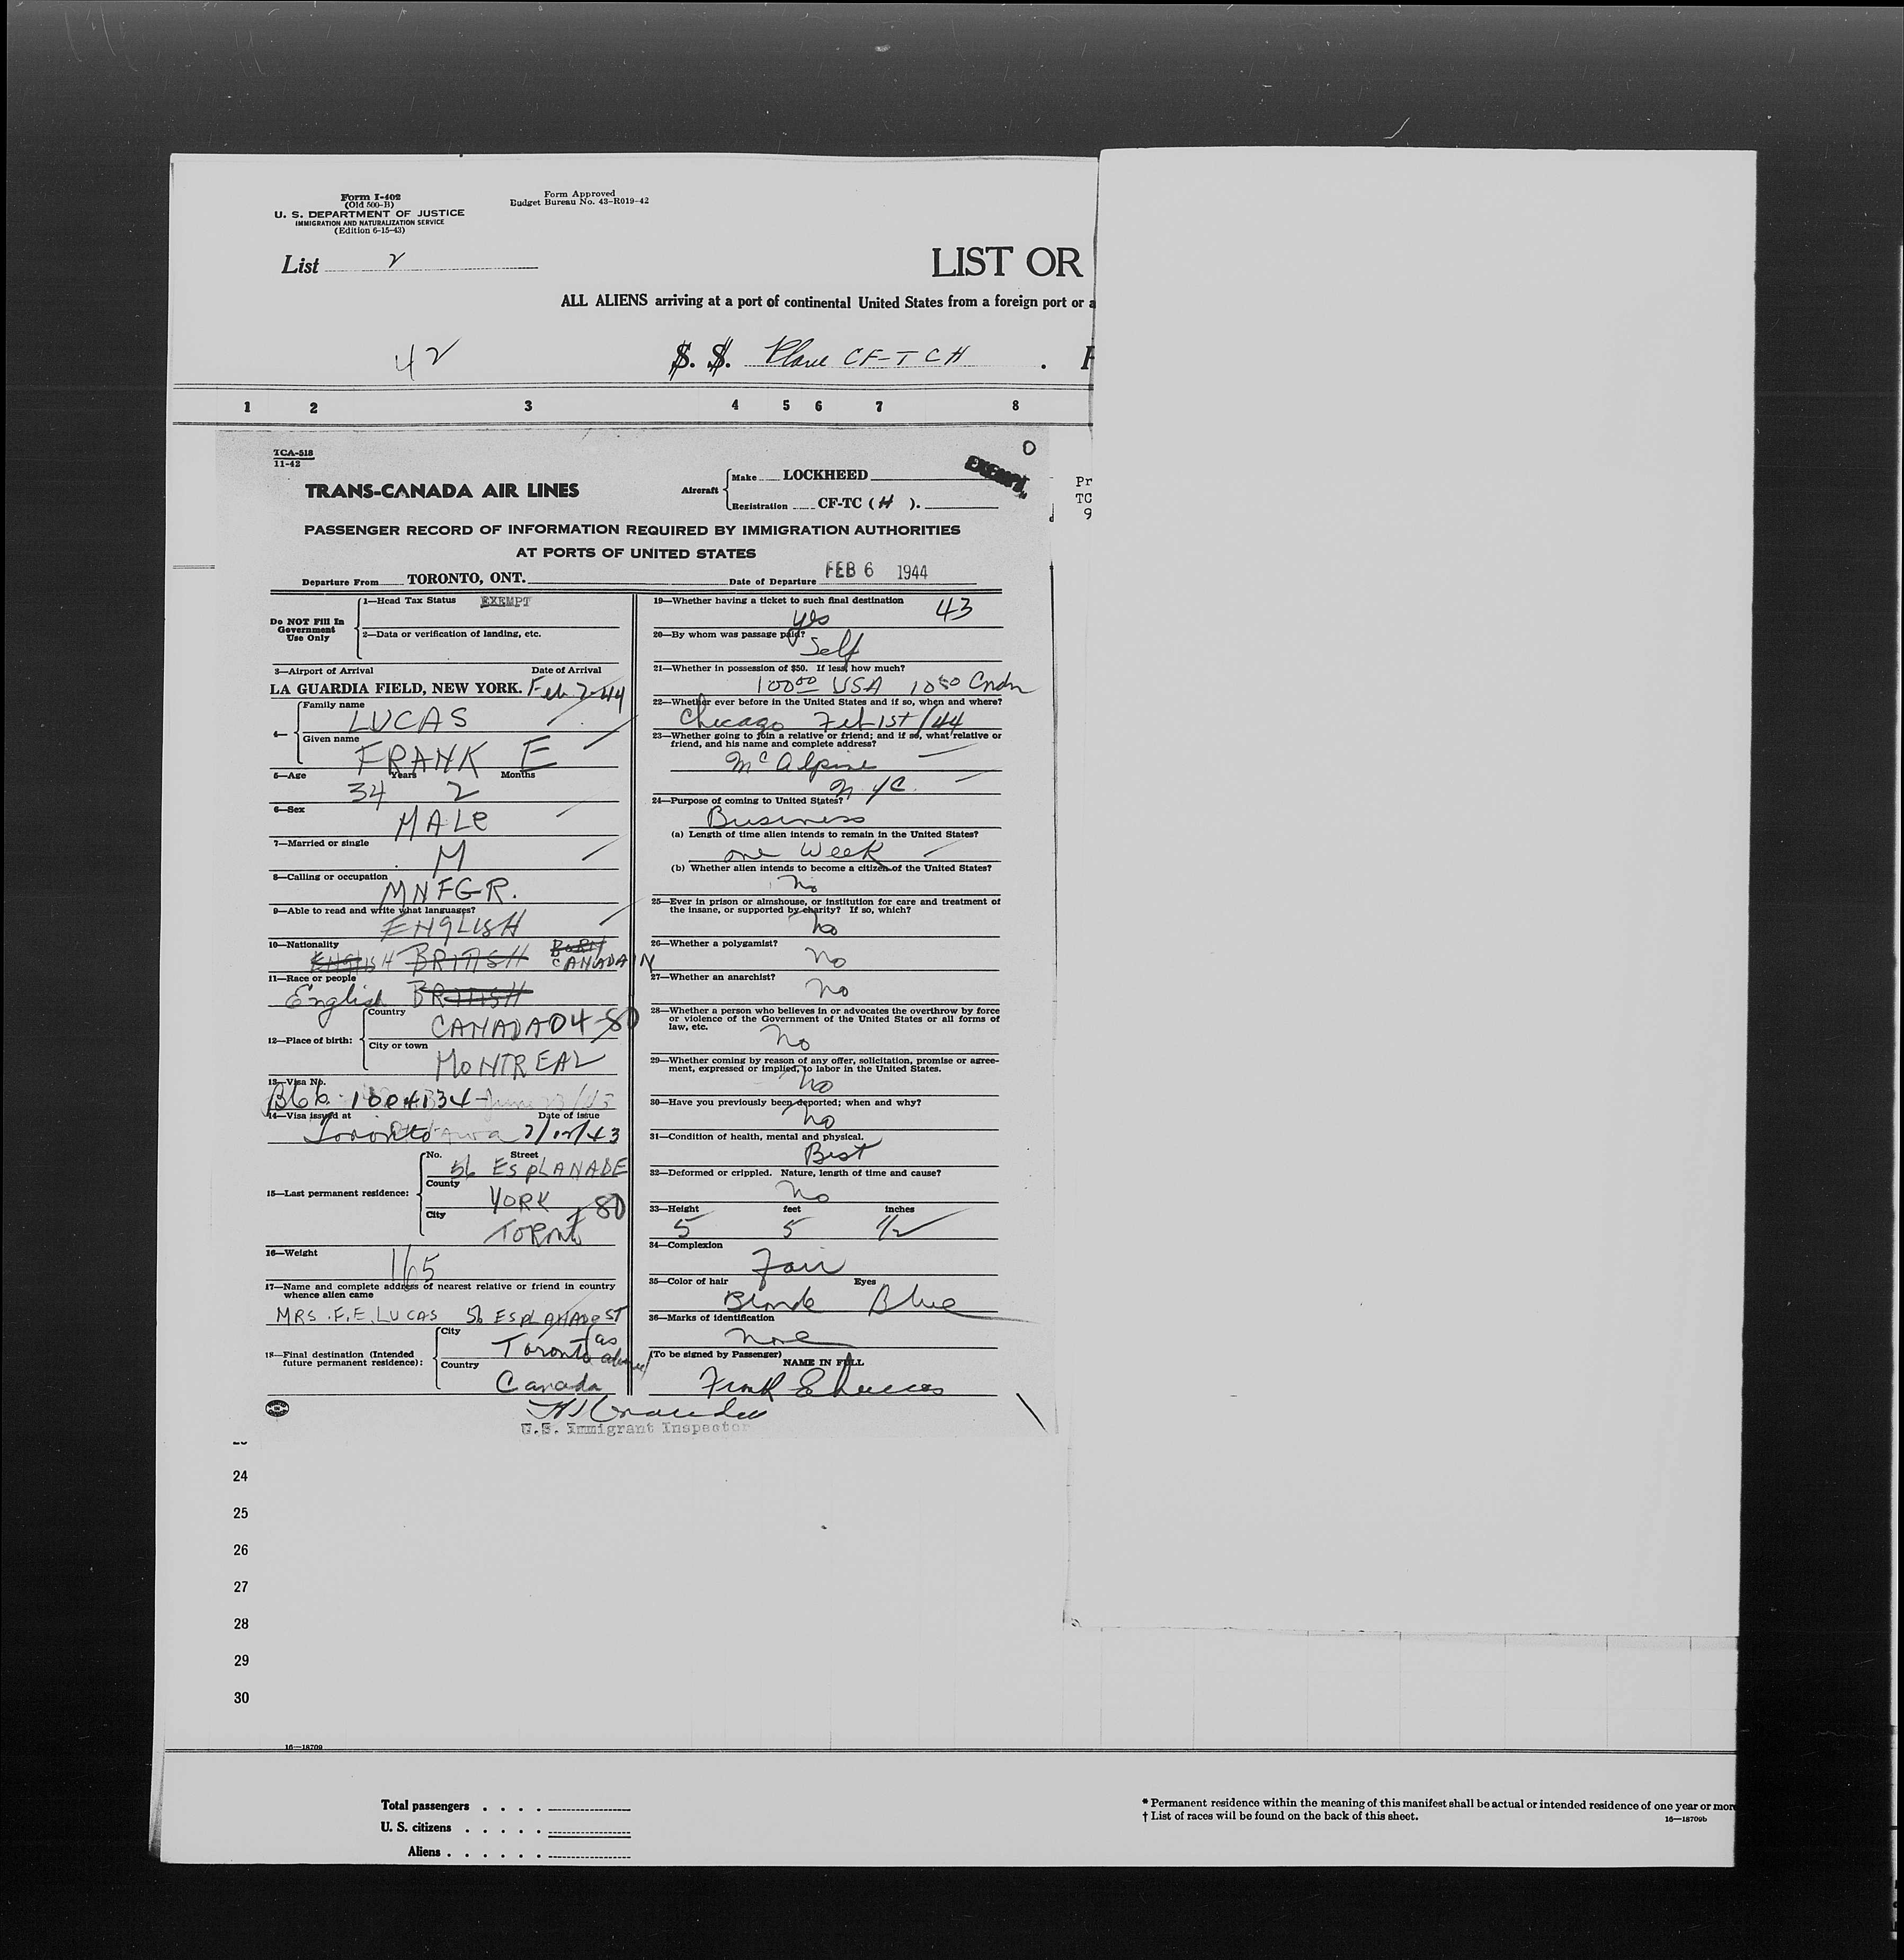 Form I-402
(Old 500-B)
U. S. DEPARTMENT OF JUSTICE
IMMIGRATION AND NATURALIZATION SERVICE
(Edition 6-15-43)
Form Approved
Budget Bureau No. 43-R019-42
List 2
LIST OR
ALL ALIENS arriving at a port of continental United States from a foreign port or a
42
S. S. Plane CF-TCH .
1 2 3 4 5 6 7 8
TCA-518
11-42
O
EXEMPT
TRANS-CANADA AIR LINES
Aircraft
Make LOCKHEED
Registration CF-TC ( H ).
Pr
TC
9
PASSENGER RECORD OF INFORMATION REQUIRED BY IMMIGRATION AUTHORITIES
AT PORTS OF UNITED STATES
Departure From TORONTO, ONT. Date of Departure FEB 6 1944
Do NOT Fill In
Government
Use Only
1—Head Tax Status EXEMPT
2—Data or verification of landing, etc.
3—Airport of Arrival Date of Arrival
LA GUARDIA FIELD, NEW YORK. Feb 7-44
4—
Family name
LUCAS
Given name
FRANK E
5—Age Years Months
34 2
6—Sex
MALE
7—Married or single
M
8—Calling or occupation
MNFGR.
9—Able to read and write what languages?
ENGLISH
10—Nationality
ENGLISH BRITISH BORN
CANADAIN
11—Race or people
English BRITISH
12—Place of birth:
Country
CANADA 04-80
City or town
MONTREAL
13—Visa No.
B66 1004134
14—Visa issued at Date of issue
Toronto 7/12/43
15—Last permanent residence:
No. Street
56 ESPLANADE
County
YORK
80
City
TORNT
16—Weight
165
17—Name and complete address of nearest relative or friend in country
whence alien came
MRS. F.E. LUCAS 56 ESPLANADE ST
18—Final destination (Intended
future permanent residence):
City
Toronto as above
Country
Canada
19—Whether having a ticket to such final destination 43
yes
20—By whom was passage paid?
Self
21—Whether in possession of $50. If less, how much?
100.00 USA 10.50 Cndn
22—Whether ever before in the United States and if so, when and where?
Chicago Feb 1st/44
23—Whether going to join a relative or friend; and if so, what relative or
friend, and his name and complete address?
McAlpine
N.Y.C.
24—Purpose of coming to United States?
Business
(a) Length of time alien intends to remain in the United States?
one Week
(b) Whether alien intends to become a citizen of the United States?
no
25—Ever in prison or almshouse, or institution for care and treatment of
the insane, or supported by charity? If so, which?
no
26—Whether a polygamist?
no
27—Whether an anarchist?
no
28—Whether a person who believes in or advocates the overthrow by force
or violence of the Government of the United States or all forms of
law, etc.
no
29—Whether coming by reason of any offer, solicitation, promise or agree-
ment, expressed or implied, to labor in the United States.
no
30—Have you previously been deported; when and why?
no
31—Condition of health, mental and physical.
Best
32—Deformed or crippled. Nature, length of time and cause?
no
33—Height feet inches
5 5 1/2
34—Complexion
Fair
35—Color of hair Eyes
Blonde Blue
36—Marks of identification
none
(To be signed by Passenger)
NAME IN FULL
Frank E Lucas
U.S. Immigrant Inspector
24
25
26
27
28
29
30
16—18709
Total passengers . . . .
U. S. citizens . . . . .
Aliens . . . . . .
* Permanent residence within the meaning of this manifest shall be actual or intended residence of one year or more
† List of races will be found on the back of this sheet.
16—18709b